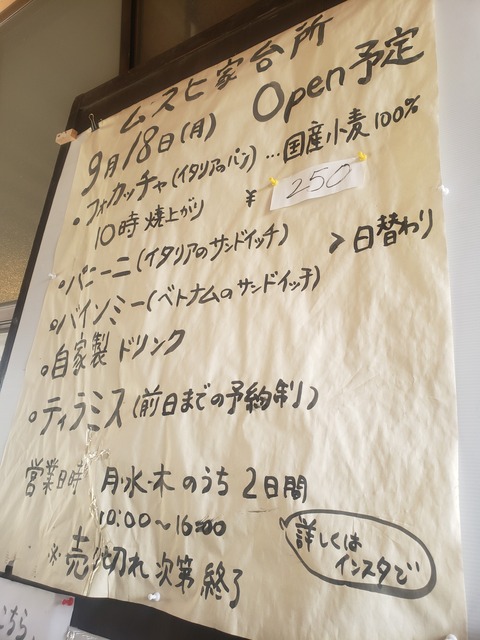 ムスヒ家台所
9月18日(月) Open予定
・フォカッチャ(イタリアのパン)…国産小麦100%
10時焼上がり ¥250
・パニーニ(イタリアのサンドイッチ)
・バインミー(ベトナムのサンドイッチ) >日替わり
・自家製ドリンク
・ティラミス(前日までの予約制)
営業日時 月・水・木のうち2日間
10:00~16:00
※売り切れ次第終了
詳しくは
インスタで
こちら